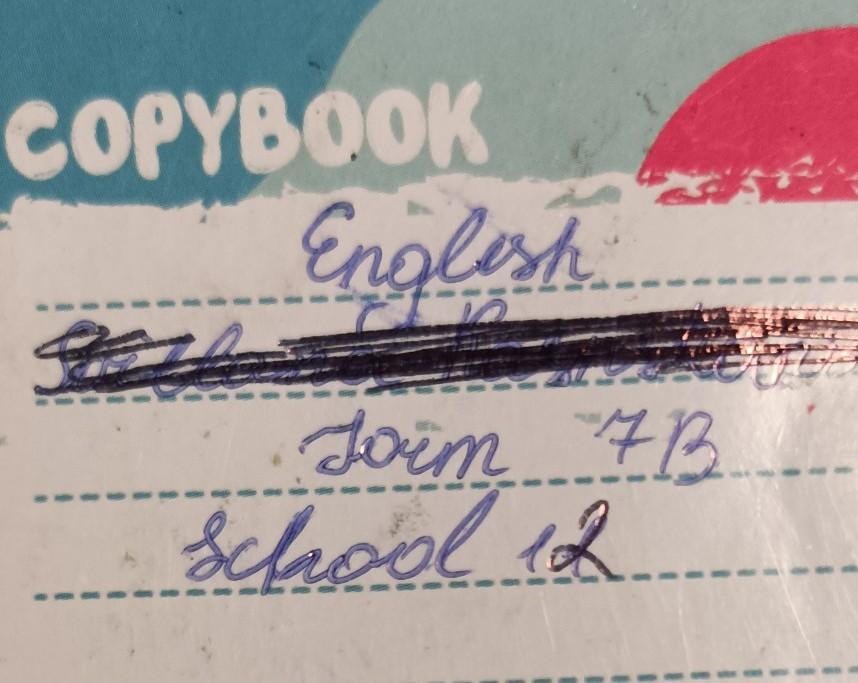 COPYBOOK
English
Form 7B
School 12